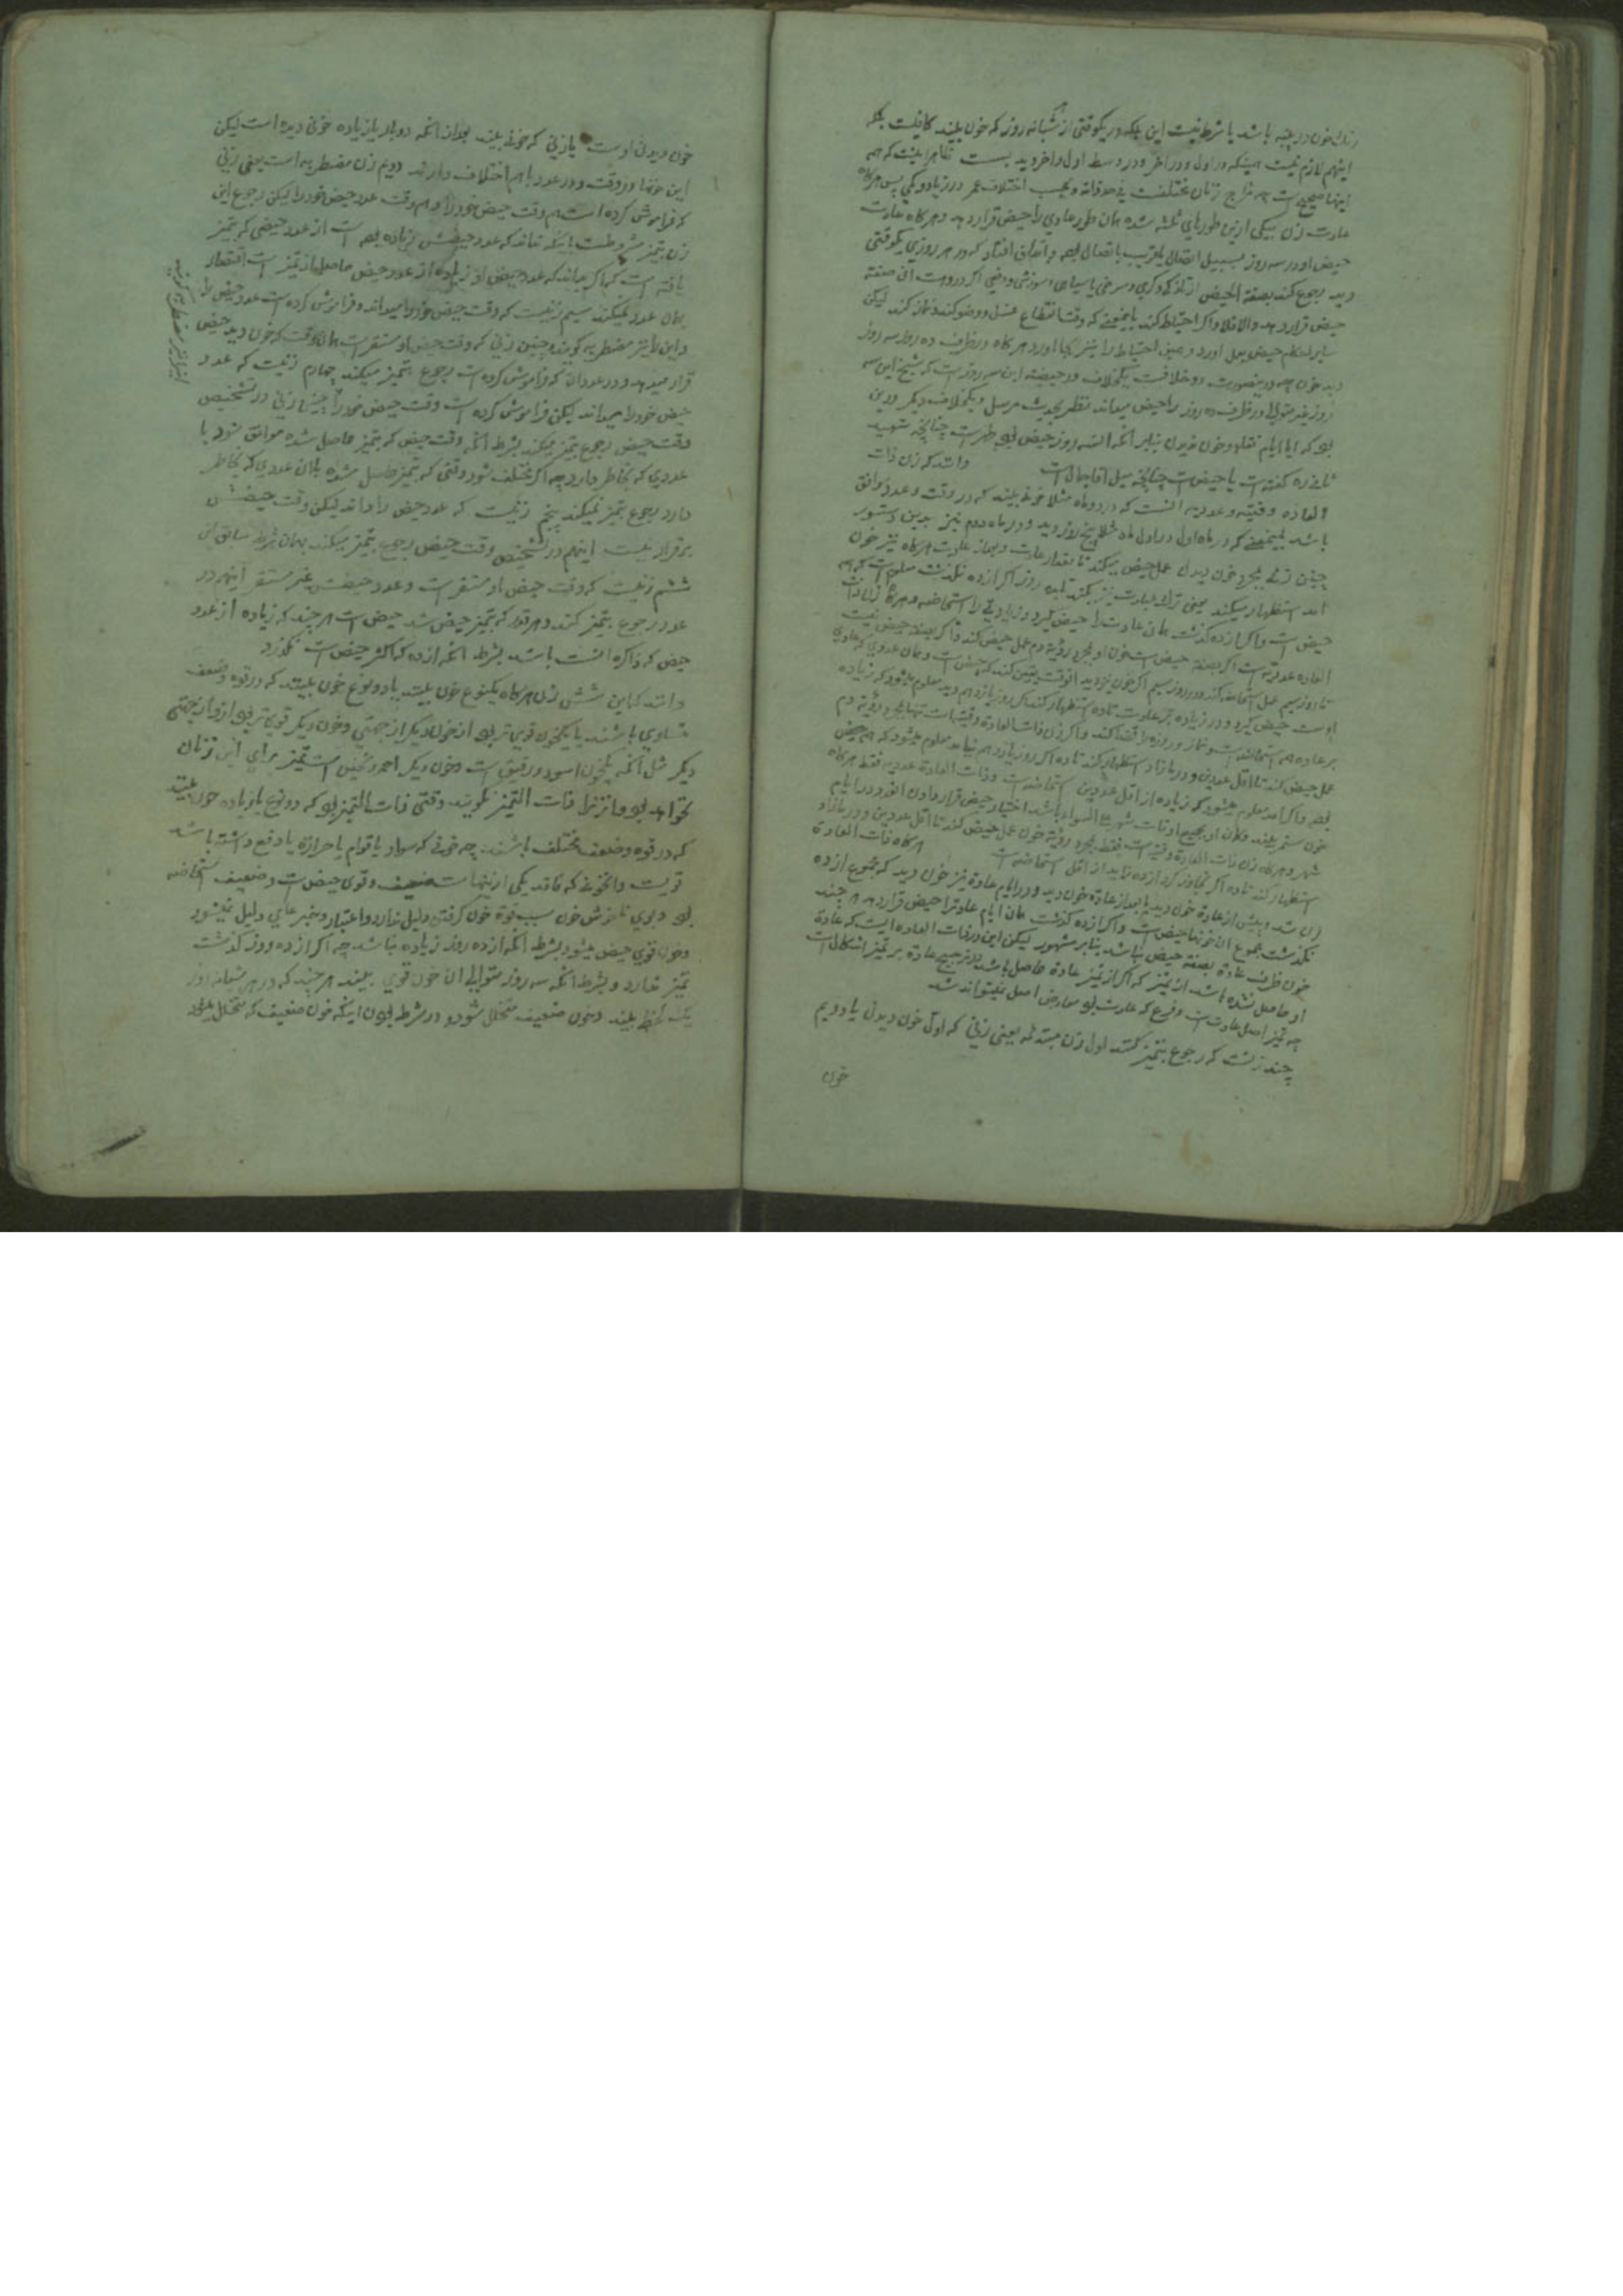 زدان خون در پنبه باشد یا شرط نیست این بلکه در یکوقتی از شبانه روز که خون بیند کافیست بلکه
اینهم لازم نیست همینکه در اول و در آخر و در وسط اول و آخر دید بست ظاهر اینست که همه
اینها صحیح است چه مزاج زنان مختلفست و بحسب اختلاف عمر در زیاد و کمی پس هرکاه
عادت زن بیکی ازین طورهای ثلثه شده همان طور عادی را حیض قرار دهد و هرکاه عادت
حیض او در سه روز بسبیل اتصال یا قریب باتصال بوده و اتفاق افتاد که در هر روزی یکوقتی
دید رجوع کند بصفة الحیض از تازکی و کرمی و سرخی یا سیاهی و سوزش و دفع اکر در وست ان صفته
حیض قرار دهد و الا فلا و اکر احتیاط کند باینمعنی که وقت انقطاع غسل و وضو کند و نماز کند لیکن
سایر احکام حیض بعمل اورد و همین احتیاط را نیز بجا اورد هرکاه در ظرف ده روز سه روز
دید خون چه درینصورت دو خلافست یکخلاف در حیضیه این سه روز است که شیخ این سه
روز غیر متوالی در ظرف ده روز را حیض میداند نظر بحدیث مرسل و یکخلاف دیکر درین
بود که ایا ایام نقاء و خون ندیدن بنابر آنکه السه روز حیض بوده طهر است چنانچه شهید
ثانی ره کفته است یا حیض است چنانچه میل اقا جمال است دانند که زن ذات
العادة وقتیه و عددیه انست که در دو ماه مثلا خونی بیند که در وقت و عدد موافق
باشد بمعنی که در ماه اول در اول ماه مثلا پنج روز دید و در ماه دوم نیز بدین دستور
چنین زنی بمجرد خون دیدن عمل حیض میکند تا مقدار عادت و بعد از عادت هرکاه نیز خون
امد استظهار میکند یعنی ترک عبادت نیز بکند تا ده روز اکر از ده نکذشت معلوم است که همه
حیض است و اکر از ده کذشت همان عادت را حیض کیرد و زیادتی را استحاضه و هرکاه زن ذات
العاده عددیه است اکر بصفة حیض است خون او بمجرد رؤیة دم عمل حیض کند و اکر بصفة حیض نیست
تا روز سیم عمل استحاضه کند و در روز سیم اکر خون نیز دید انوقت یقین کند که حیض است و همان عددی که عادی
اوست حیض کیرد و در زیاده بر عادت تا ده استظهار کند اکر روز یازدهم دید معلوم میشود که زیاده
بر عاده همه استحاضه است و نماز و روزه را قضا کند و اکر زن ذات العادة وقتیه است تنها بمجرد رؤیة دم
عمل حیض کند تا اقل عددین و در مازاد استظهار کند تا ده اکر روز یازدهم نیامد معلوم میشود که همه حیض
بوده و اکر امد معلوم میشود که زیاده از اقل عددین استحاضه است و ذات العادة عددیه فقط هرکاه
خون مستمر بیند و کان او بجمیع اوقات شهر علی السواء باشد اختیار حیض قرار دادن انقدر در ایام
شهر و هرکاه زن ذات العادة وقتیه است فقط بمجرد رؤیة خون عمل حیض کند تا اقل عددین و در مازاد
استظهار کند تا ده اکر تجاوز کرد از ده زاید از اقل استحاضه است هرکاه ذات العادة
زن شد و پیش از عادة خون دید یا بعد از عادة خون دید و در ایام عادة نیز خون دید که مجموع از ده
نکذشت مجموع ان خونها حیض است و اکر از ده کذشت همان ایام عادترا حیض قرار دهد هر چند
خون طرف عادة بصفة حیض باشد بنابر مشهور لیکن این در ذات العاده ایست که عادة
او حاصل نشده باشد از تمیز که اکر از تمیز عادة حاصل باشد در ترجیح عادة بر تمیز اشکال است
چه تمیز اصل عادت است و فرع که عادت بود معارض اصل نمیتواند شد
چند زنست که رجوع بتمیز کنند اول زن مبتدئه یعنی زنی که اول خون دیدن یا دویم
خون
خون دیدن اوست یا زنی که خونی بیند بعد از آنکه دو بار یا زیاده خونی دیده است لیکن
این خونها در وقت و در عدد باهم اختلاف دارند دویم زن مضطربه است یعنی زنی
که فراموش کرده است هم وقت حیض خود را و هم وقت عدد حیض خود را لیکن رجوع این
زن بتمیز مشروطست باینکه نداند که عدد حیضش زیاده بوده است از عدد حیضی که بتمیز
یافته است که اکر میداند که عدد حیض او زیاده از عدد حیض حاصل از تمیز است اقتصار
بهمان عدد نمیکند سیم زنیست که وقت حیض خود را میداند و فراموش کرده است عدد حیض را
و این را نیز مضطربه کویند و چنین زنی که وقت حیض او مستقر است همان وقت که خون دید حیض
قرار میدهد و در عددان که فراموش کرده است رجوع بتمیز میکند چهارم زنیست که عدد
حیض خود را میداند لیکن فراموش کرده است وقت حیض خود را چنین زنی در تشخیص
وقت حیض رجوع بتمیز میکند بشرط آنکه وقت حیض که بتمیز حاصل شده موافق شود با
عددی که بخاطر دارد چه اکر مختلف شود وقتی که بتمیز حاصل شده با ان عددی که بخاطر
دارد رجوع بتمیز نمیکند پنجم زنیست که عدد حیض را داند لیکن وقت حیضش
برقرار نیست اینهم در تشخیص وقت حیض رجوع بتمیز میکند بهمان شرط سابق
ششم زنیست که وقت حیض او مستقر است و عدد حیضش غیر مستقر اینهم در
عدد رجوع بتمیز کند و هر قدر که بتمیز حیض شد حیض است هر چند که زیاده از عدد
حیض که ذاکره انست باشد بشرط آنکه از ده که اکثر حیض است نکذرد
دانند که این شش زن هرکاه یکنوع خون بینند یا دو نوع خون بینند که در قوة و ضعف
متساوی باشند یا یکخون قوی تر بود از خون دیکر از جهتی و خون دیکر قوی تر بود ازو از جهتی
دیکر مثل آنکه یکخون اسود و رقیق است و خون دیکر احمر و ثخین است تمیز برای این زنان
نخواهد بود و انزنرا ذات التمیز نکویند وقتی ذات التمیز بود که دو نوع یا زیاده خون بیند
که در قوة و ضعف مختلف باشند چه خونی که سواد یا قوام یا حرارة یا دفع داشته باشد
قویست و انخونی که فاقد یکی ازینهاست ضعیف و قوی حیض است و ضعیف استحاضه
بود و بوی ناخوش خون سبب قوة خون کرفتن دلیل ندارد و اعتبار و خبر عامی دلیل نمیشود
و خون قوی حیض میشود بشرط آنکه از ده روز زیاده نباشد چه اکر از ده روز کذشت
تمیز ندارد و بشرط آنکه سه روز متوالی ان خون قوی بیند هر چند که در هر شبانه روز
یک لحظه بیند و خون ضعیف متخلل شود و در شرط بودن اینکه خون ضعیف که متخلل میشود